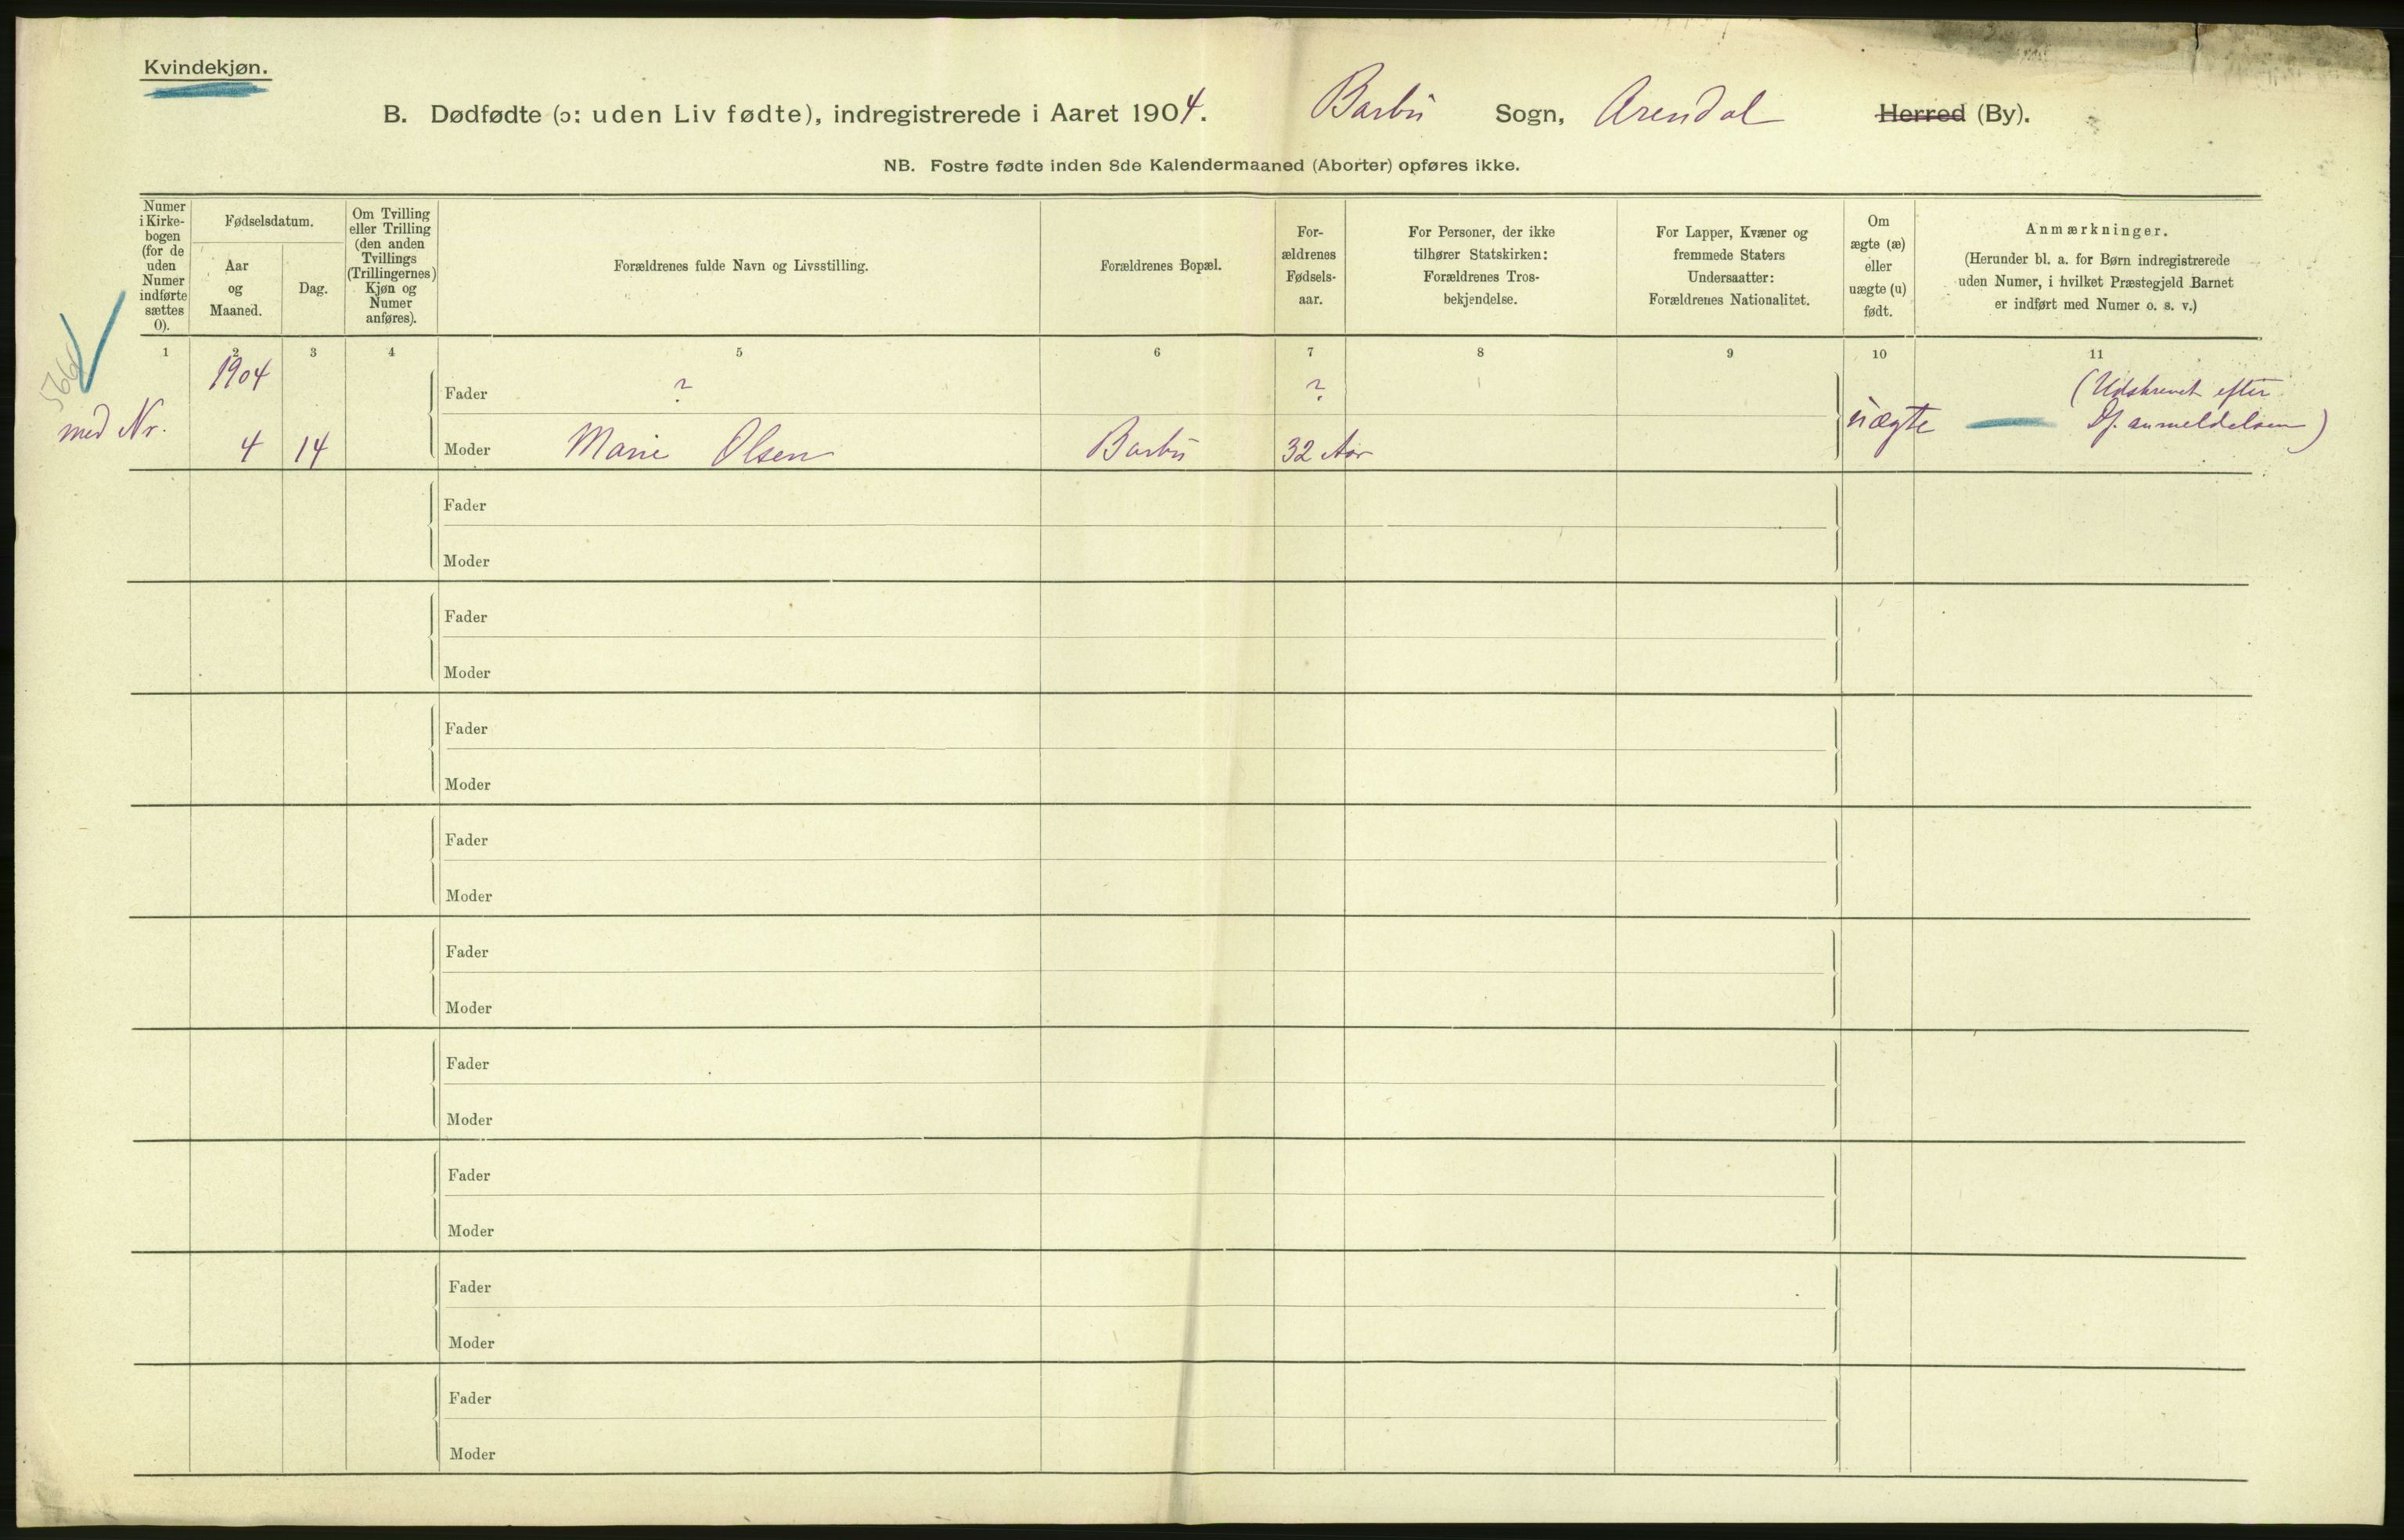 Kvindekjøn.
B. Dødfødte (ɔ: uden Liv fødte), indregistrerede i Aaret 1904. Barbu Sogn, Arendal Herred (By).
NB. Fostre fødte inden 8de Kalendermaaned (Aborter) opføres ikke.
Numer i Kirke-bogen (for de uden Numer indførte sættes 0).
Fødselsdatum.
Aar og Maaned.
Dag.
Om Tvilling eller Trilling (den anden Tvillings (Trillingernes) Kjøn og Numer anføres).
Forældrenes fulde Navn og Livsstilling.
Forældrenes Bopæl.
For-ældrenes Fødsels-aar.
For Personer, der ikke tilhører Statskirken: Forældrenes Tros-bekjendelse.
For Lapper, Kvæner og fremmede Staters Undersaatter: Forældrenes Nationalitet.
Om ægte (æ) eller uægte (u) født.
Anmærkninger.
(Herunder bl. a. for Børn indregistrerede uden Numer, i hvilket Præstegjeld Barnet er indført med Numer o. s. v.)
1 2 3 4 5 6 7 8 9 10 11
1904
Fader ? ? (Udskrevet efter
med Nr. 4 14 Moder Marie Olsen Barbu 32 Aar uægte anmeldelsen)
Fader
Moder
Fader
Moder
Fader
Moder
Fader
Moder
Fader
Moder
Fader
Moder
Fader
Moder
Fader
Moder
Fader
Moder